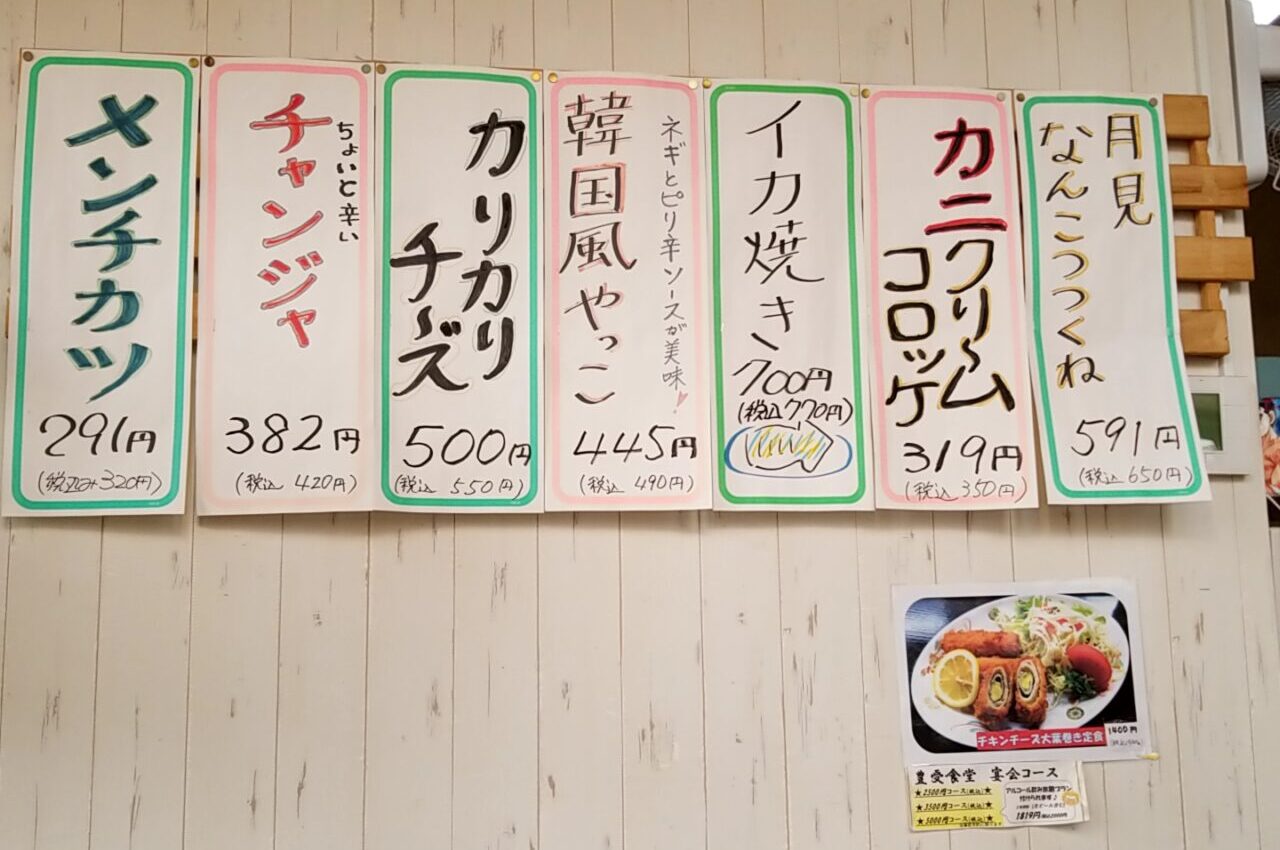 メンチカツ
291円
(税込み320円)
ちょいと辛い
チャンジャ
382円
(税込 420円)
カリカリ
チーズ
500円
(税込 550円)
ネギとピリ辛ソースが美味
韓国風やっこ
445円
(税込 490円)
イカ焼き
700円
(税込770円)
カニクリーム
コロッケ
319円
(税込350円)
月見
なんこつつくね
591円
(税込 650円)
チキンチーズ大葉巻き定食
1400円
豊受食堂 宴会コース
★2500円コース(税込)★
★3500円コース(税込)★
★5000円コース(税込)★
アルコール飲み放題プラン
付けられます♪
1819円(税込2000円)